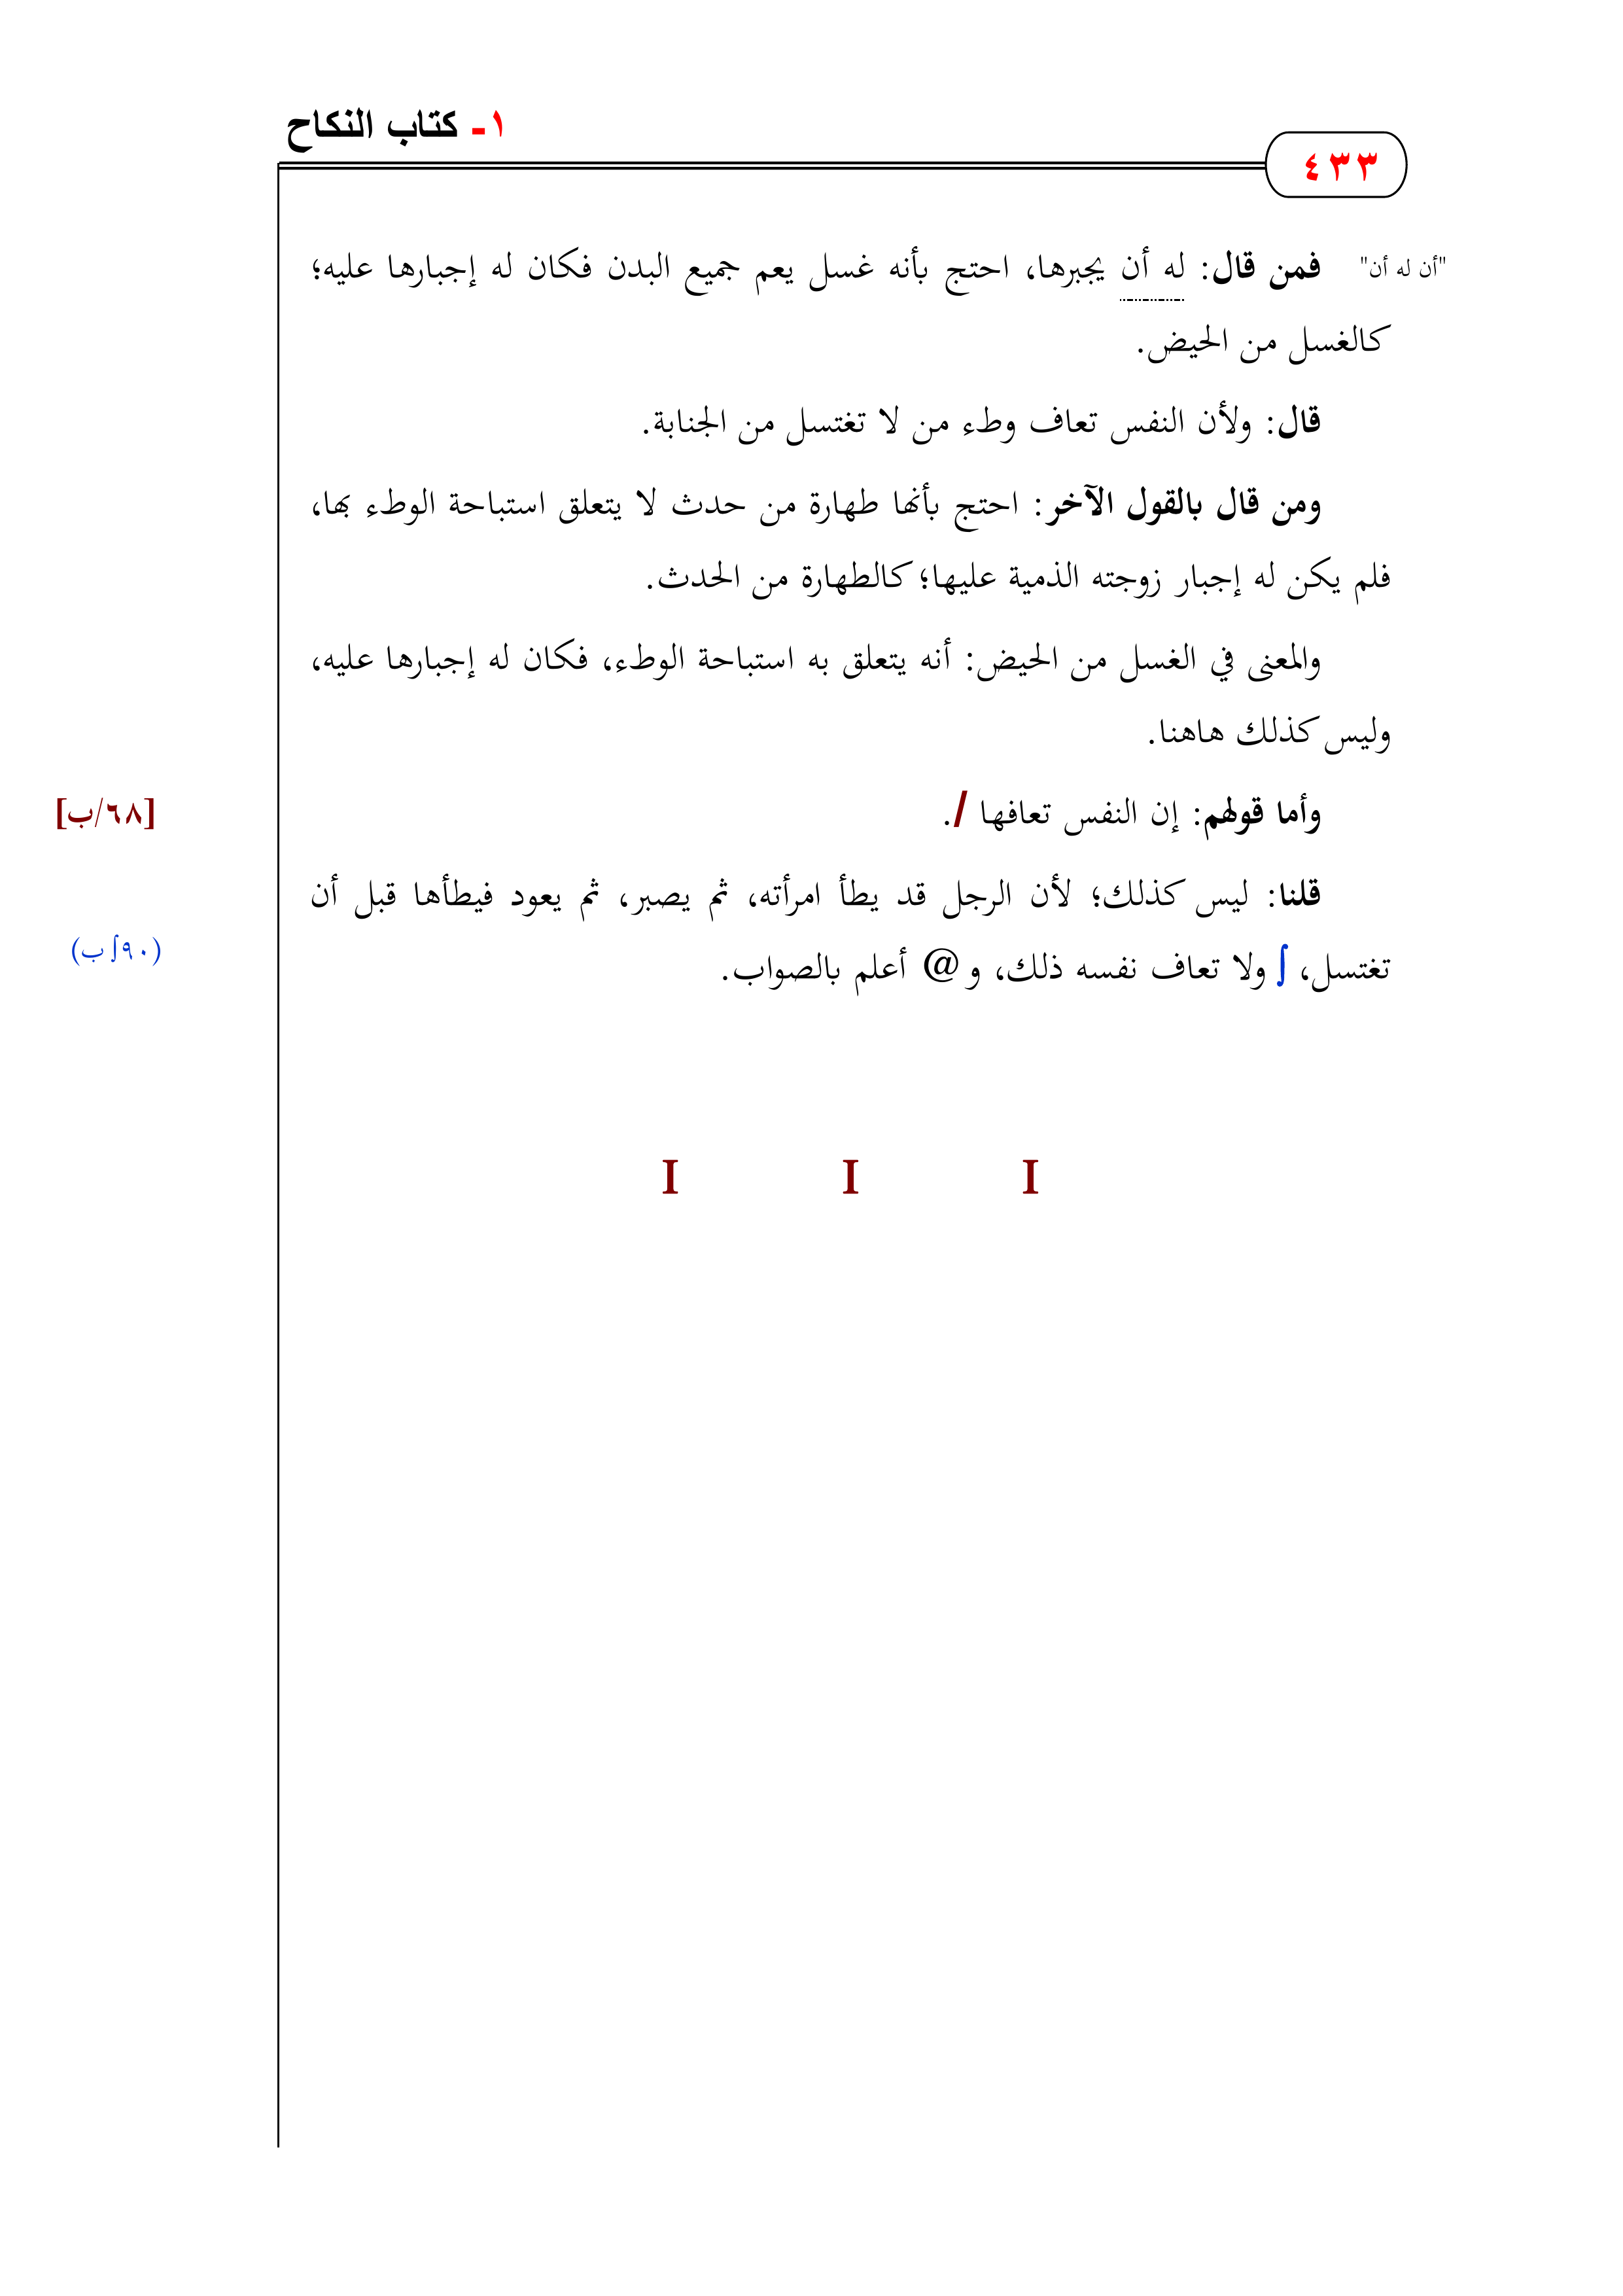 ١- كتاب النكاح
٤٣٣
"أن له أن"
فمن قال: له أن يجبرها، احتج بأنه غسل يعم جميع البدن فكان له إجبارها عليه؛
كالغسل من الحيض.
قال: ولأن النفس تعاف وطء من لا تغتسل من الجنابة.
ومن قال بالقول الآخر: احتج بأنها طهارة من حدث لا يتعلق استباحة الوطء بها،
فلم يكن له إجبار زوجته الذمية عليها؛ كالطهارة من الحدث.
والمعنى في الغسل من الحيض: أنه يتعلق به استباحة الوطء، فكان له إجبارها عليه،
وليس كذلك هاهنا.
وأما قولهم: إن النفس تعافها /.
[٦٨/ب]
قلنا: ليس كذلك؛ لأن الرجل قد يطأ امرأته، ثم يصبر، ثم يعود فيطأها قبل أن
تغتسل، ∫ ولا تعاف نفسه ذلك، و @ أعلم بالصواب.
(٩٠∫ب)
I I I